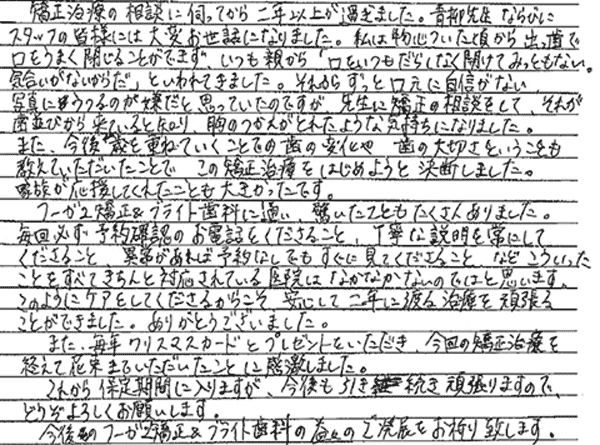 矯正治療の相談に伺ってから二年以上が過ぎました。青柳先生ならびに
スタッフの皆様には大変お世話になりました。私は物心ついた頃から出っ歯で
口をうまく閉じることができず、いつも親から「口をいつもだらしなく開けてみっともない。
気合いがないからだ」といわれてきました。それからずっと口元に自信がない、
写真にもうつるのが嫌だと思っていたのですが、先生に矯正の相談をして、それが
歯並びから来ていると知り、胸のつかえがとれたような気持ちになりました。
また、今後歳を重ねていくことでの歯の変化や 歯の大切さということも
教えていただいたことで この矯正治療をはじめようと決断しました。
家族が応援してくれたことも大きかったです。
フーガ2矯正&ブライト歯科に通い、驚いたこともたくさんありました。
毎回必ず予約確認のお電話をくださること、丁寧な説明を常にして
くださること、異常があれば予約なしでもすぐに見てくださること、などこういった
ことをすべてきちんと対応されている医院はなかなかないのではと思います。
このようにケアをしてくださるからこそ、安心して二年に渡る治療を頑張る
ことができました。ありがとうございました。
また、毎年クリスマスカードとプレゼントをいただき、今回の矯正治療を
終えて花束までいただいたことに感激しました。
これから保定期間に入りますが、今後も引き続き頑張りますので、
どうぞよろしくお願いします。
今後のフーガ2矯正&ブライト歯科の益々のご発展をお祈り致します。